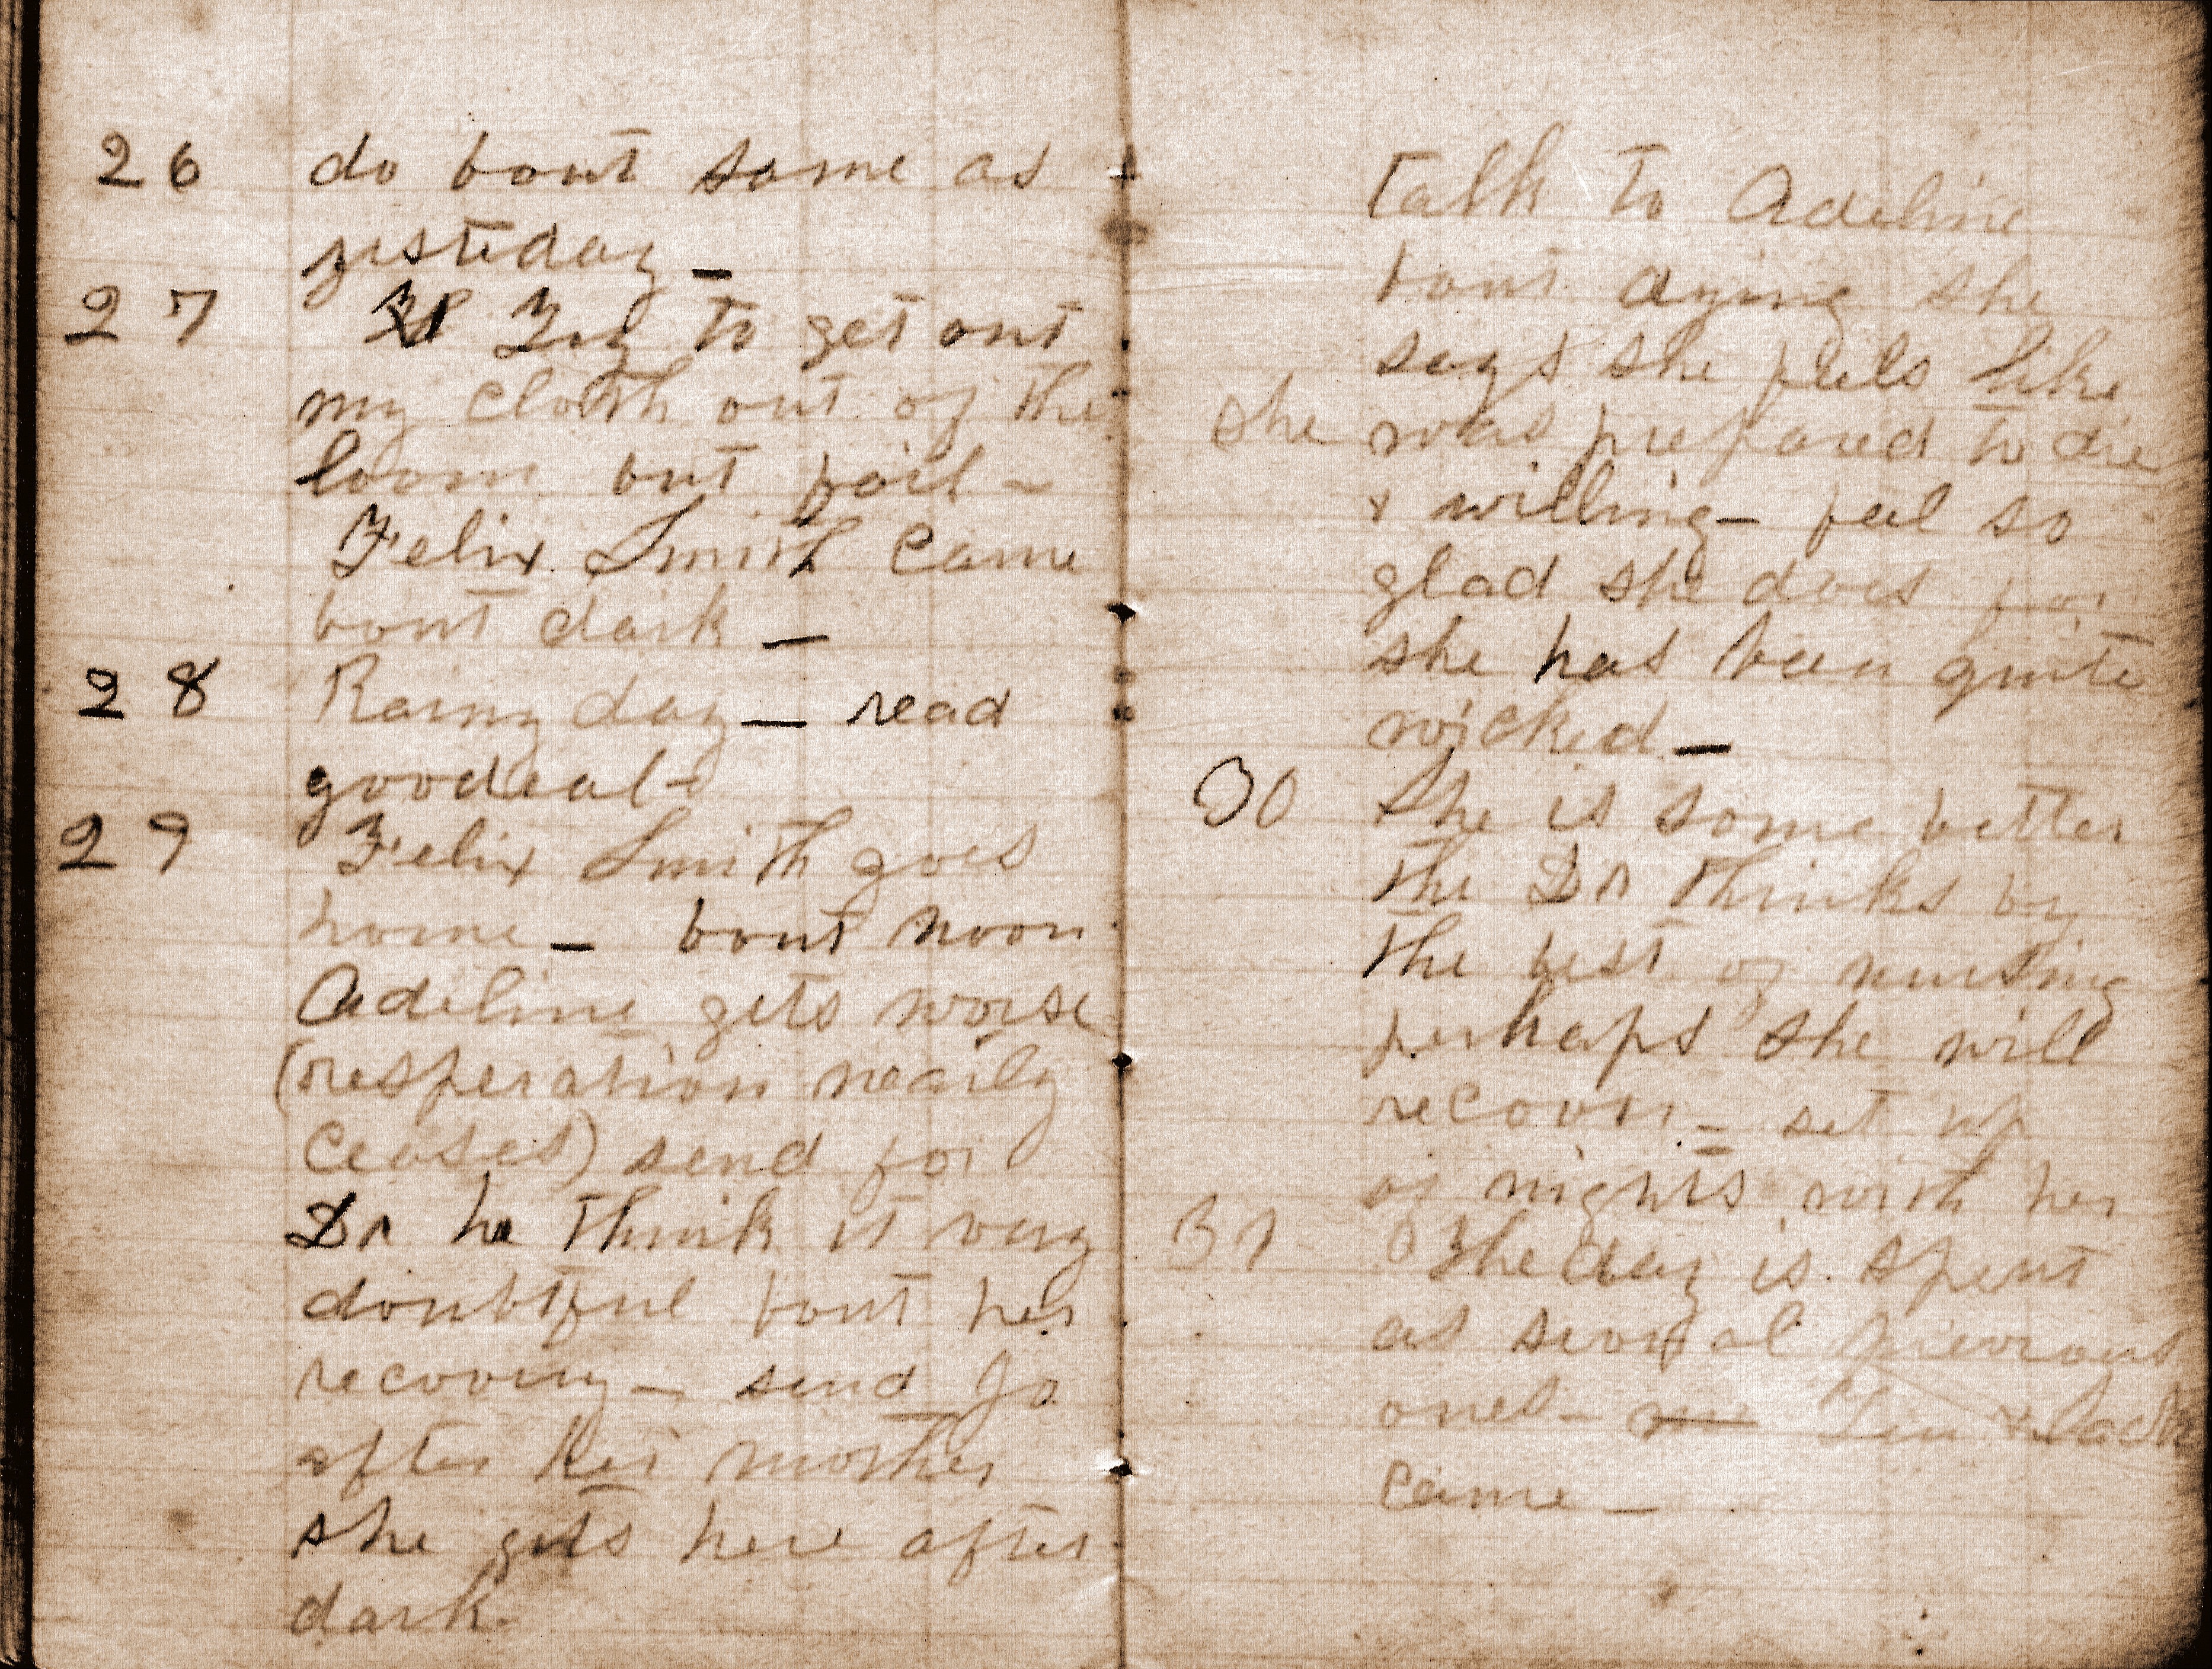 26 do bout same as
yesteday _
27 Try to get out
my cloth out of the
loom but fail -
Felix Smith came
bout dark _
28 Rainy day _ read
goodeal -
29 Felix Smith goes
home _ bout noon
Adeline gets worse
(resperation nearly
ceases) send for
Dr he think it very
doubtful bout her
recovery - send Jo
after her mother
she gets here after
dark -
talk to Adeline
bout dying she
says she feels like
she was prepared to die
& willing - feel so
glad she does for
she has been quite
wicked _
30 She is some better
the Dr thinks by
the best of nursing
perhaps she will
recover - set up
of nights with her
31 The day is spent
as several previous
ones - &
came _